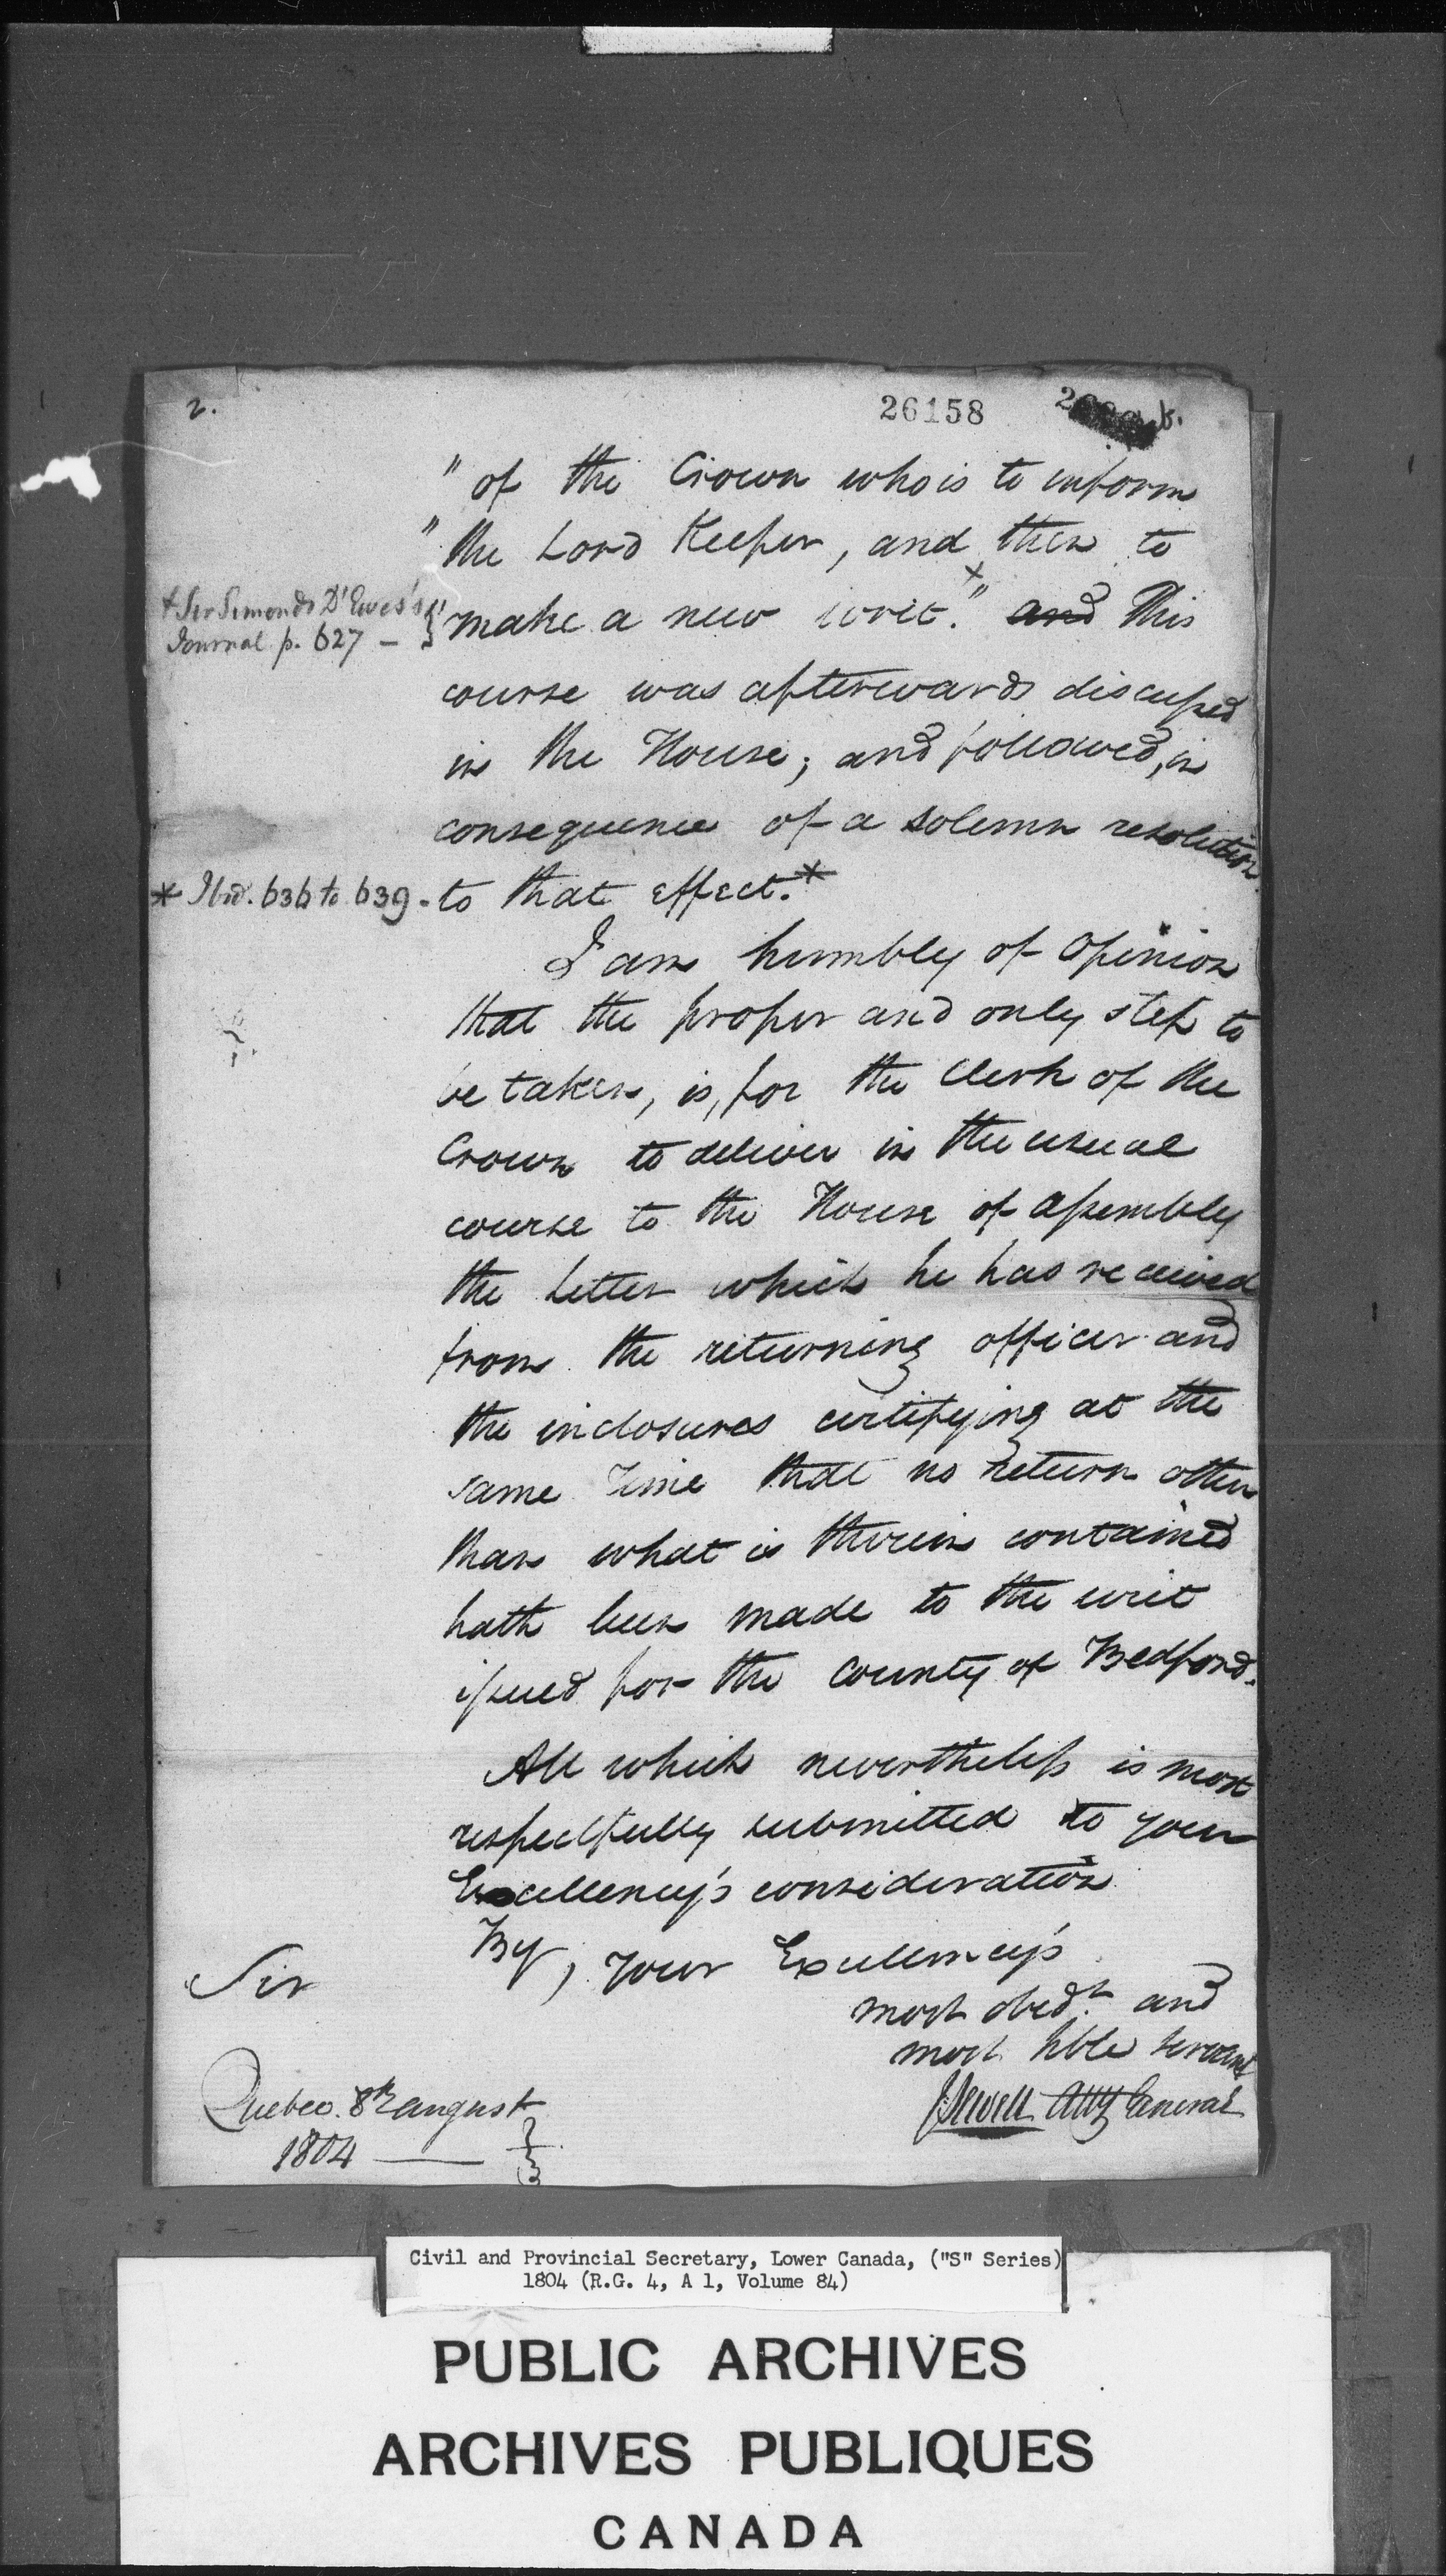 2.
26158
" of the Crown who is to inform
" the Lord Keeper, and then to
+ Sir Simonds D'Ewes's
Journal p. 627 –
" make a new writ." x and This
course was afterwards discussed
in the House; and followed, in
consequence of a solemn resolution
* Ibid. 636 to 639. to that effect.*
I am humbly of opinion
that the proper and only step to
be taken, is, for the Clerk of the
Crown to deliver in the usual
course to the House of assembly
the letter which he has received
from the returning officer and
the inclosures certifying at the
same time that no return other
than what is therein contained
hath been made to the writ
issued for the County of Bedford.
All which nevertheless is most
respectfully submitted to your
Excellency's consideration
By, your Excellency's
Sir
most obedt. and
most hble servant
JSewell Atty General
Quebec. 8th august
1804 —
Civil and Provincial Secretary, Lower Canada, ("S" Series)
1804 (R.G. 4, A 1, Volume 84)
PUBLIC ARCHIVES
ARCHIVES PUBLIQUES
CANADA